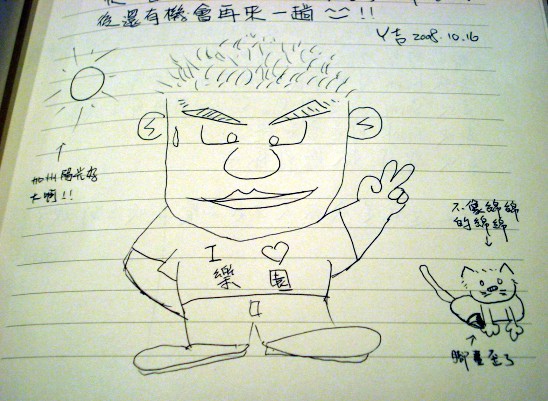 後還有機會再來一趟 !!
Y吉 2008.10.16
加州陽光好
大啊!!
I ♡
樂園
不像綿綿
的綿綿
腳畫歪了